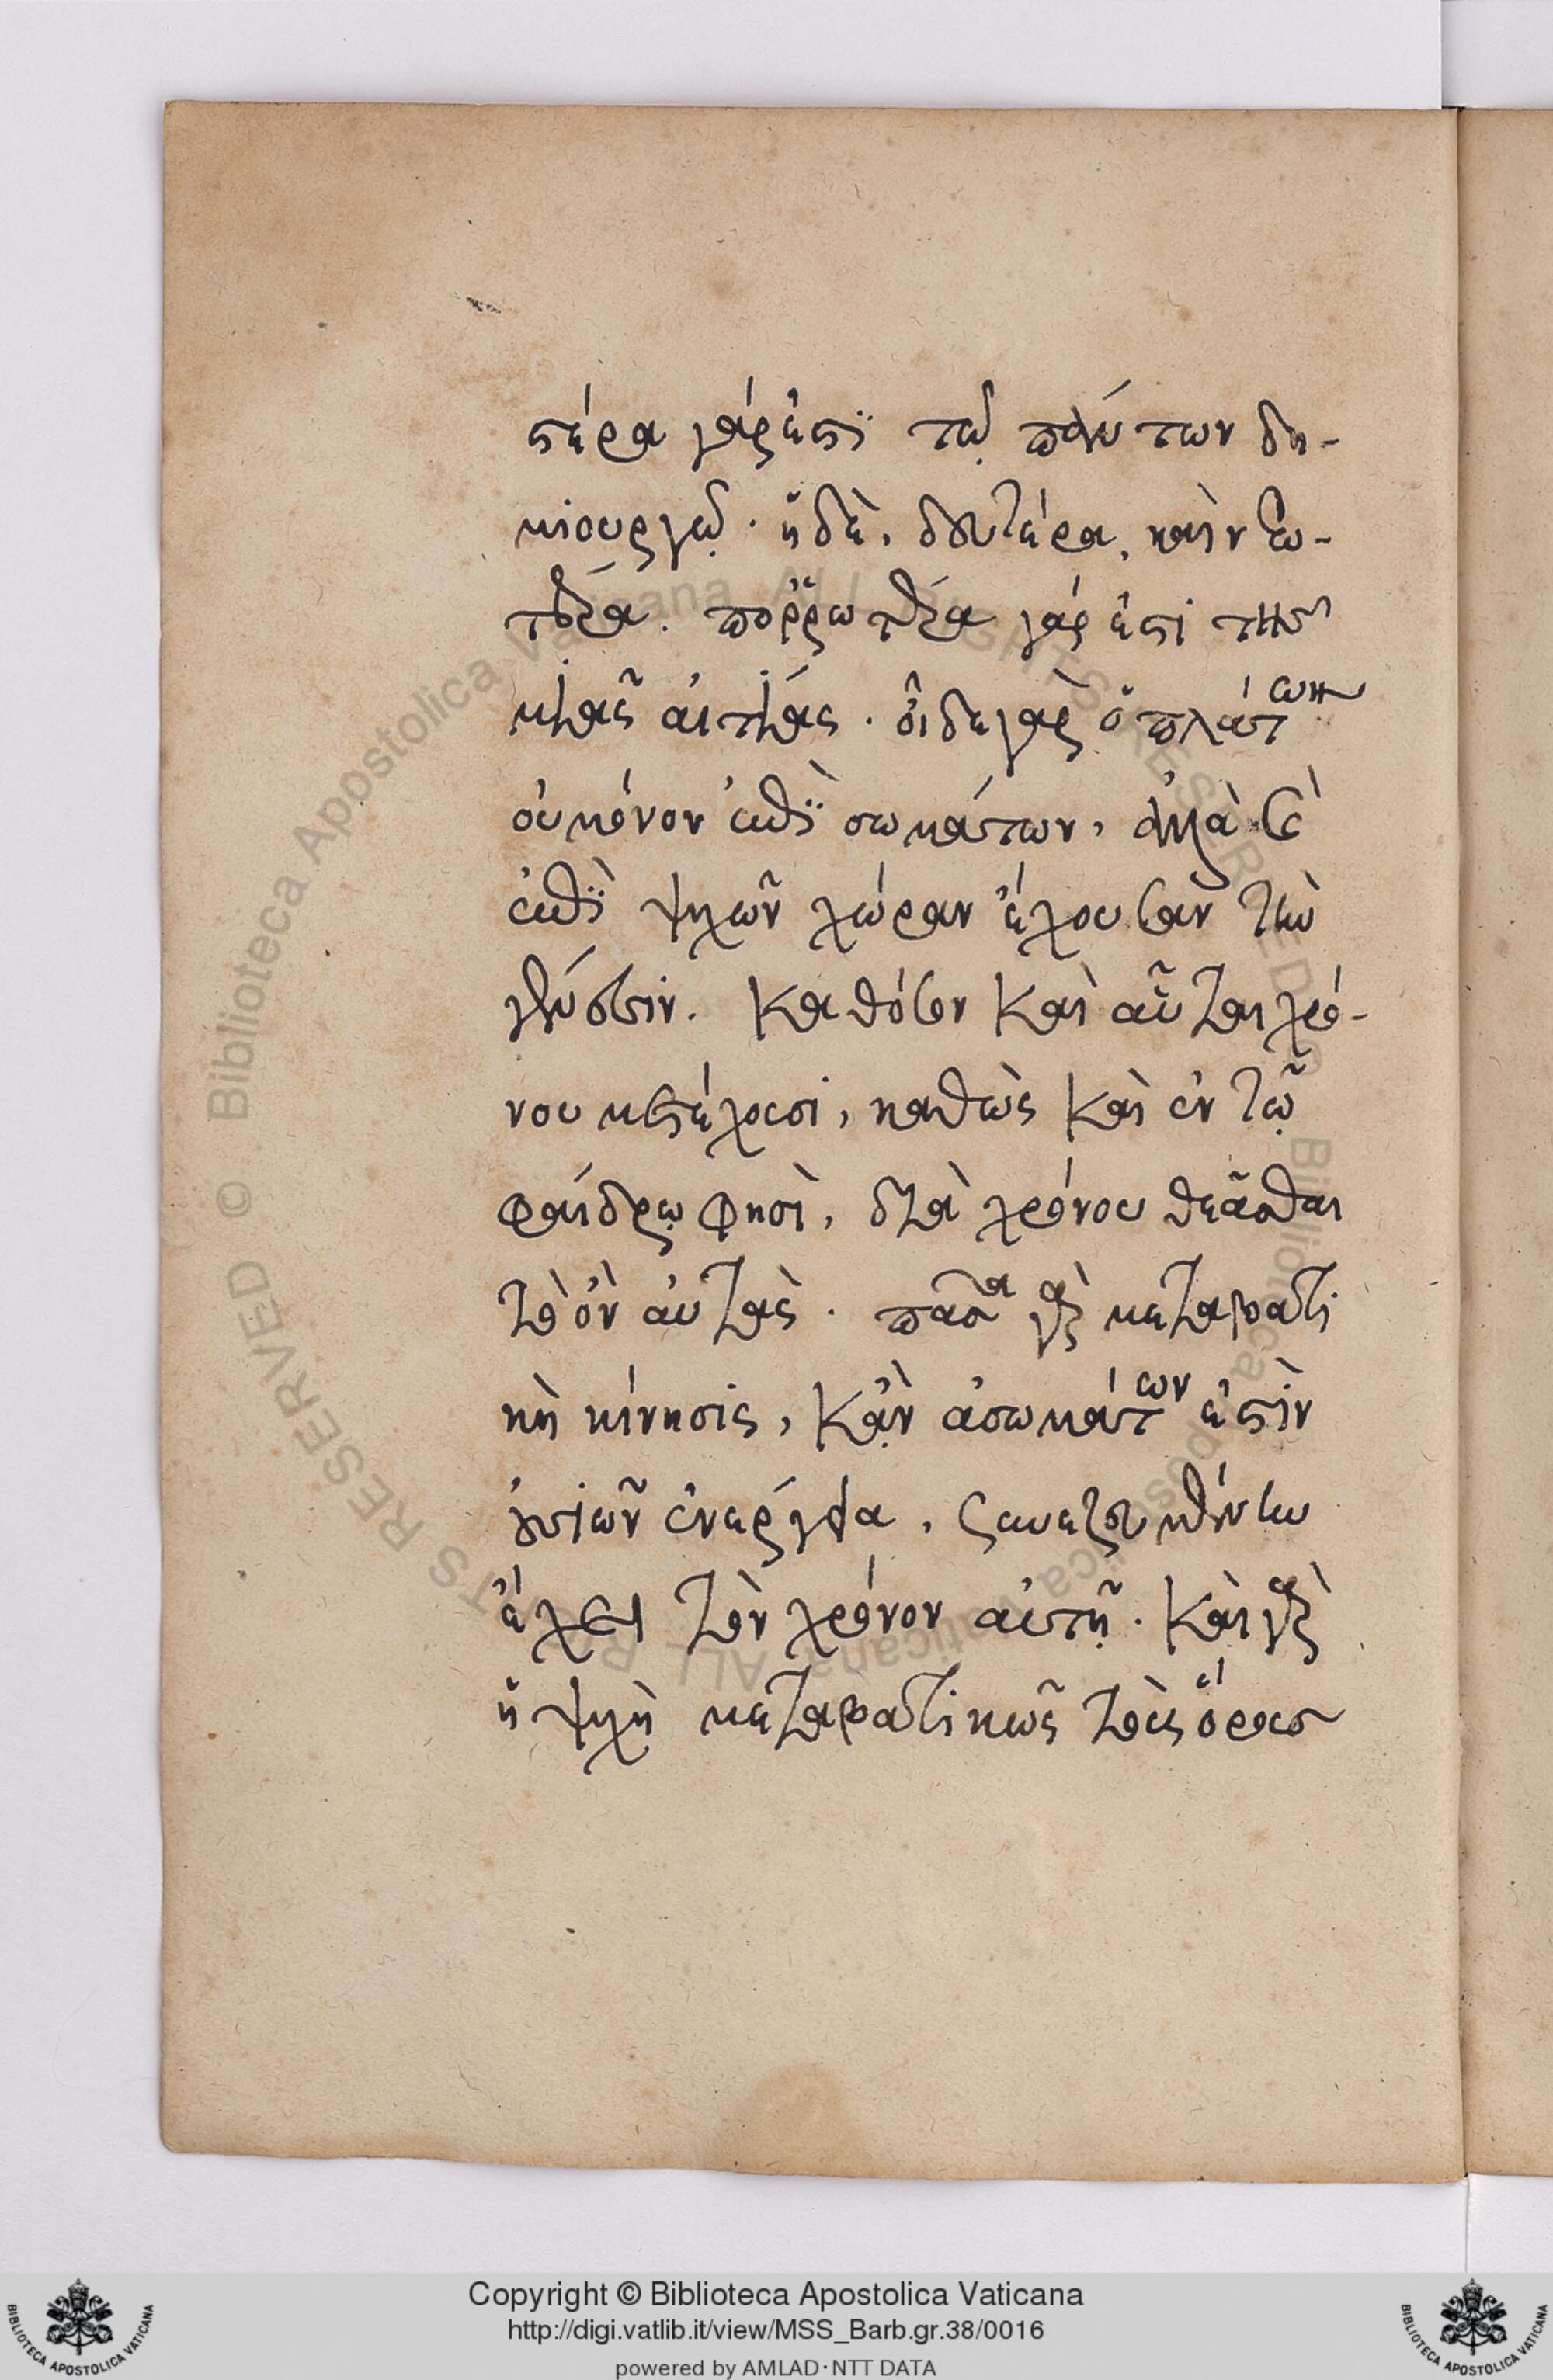 στέρα γάρ ἐστϊ τῷ πάντων δη-
μιουργῷ. ἡ δὲ, δευτέρα, καὶ νεω-
τέρα. πορῤωτέρα γάρ ἐστι τῆς
μιᾶς αἰτίας. οἶδε γὰρ ὁ πλάτων
οὐ μόνον ἐπῒ σωμάτων, ἀλλὰ καὶ
ἐπῒ ψυχῶν χώραν ἔχουσαν τὴν
γένεσιν. καθόσον καὶ αὗται χρό-
νου μετέχουσι, καθὼς καὶ ἐν τῷ
φαίδρῳ φησὶ, διὰ χρόνου θεᾶσθαι
τὸ ὂν αὐτὰς. πᾶσα γὰρ μεταβατι
κὴ κίνησις, κἂν ἀσωμάτων ἐστὶν
οὐσιῶν ἐνέργεια, συνεζευγμένον
ἔχει τὸν χρόνον αὐτῇ. καὶ γὰρ
ἡ ψυχὴ μεταβατικῶς τοὺς ὅρους
Copyright © Biblioteca Apostolica Vaticana
http://digi.vatlib.it/view/MSS_Barb.gr.38/0016
powered by AMLAD·NTT DATA
BIBLIOTECA APOSTOLICA VATICANA
BIBLIOTECA APOSTOLICA VATICANA
Biblioteca Apostolica Vaticana ALL RIGHTS RESERVED ©